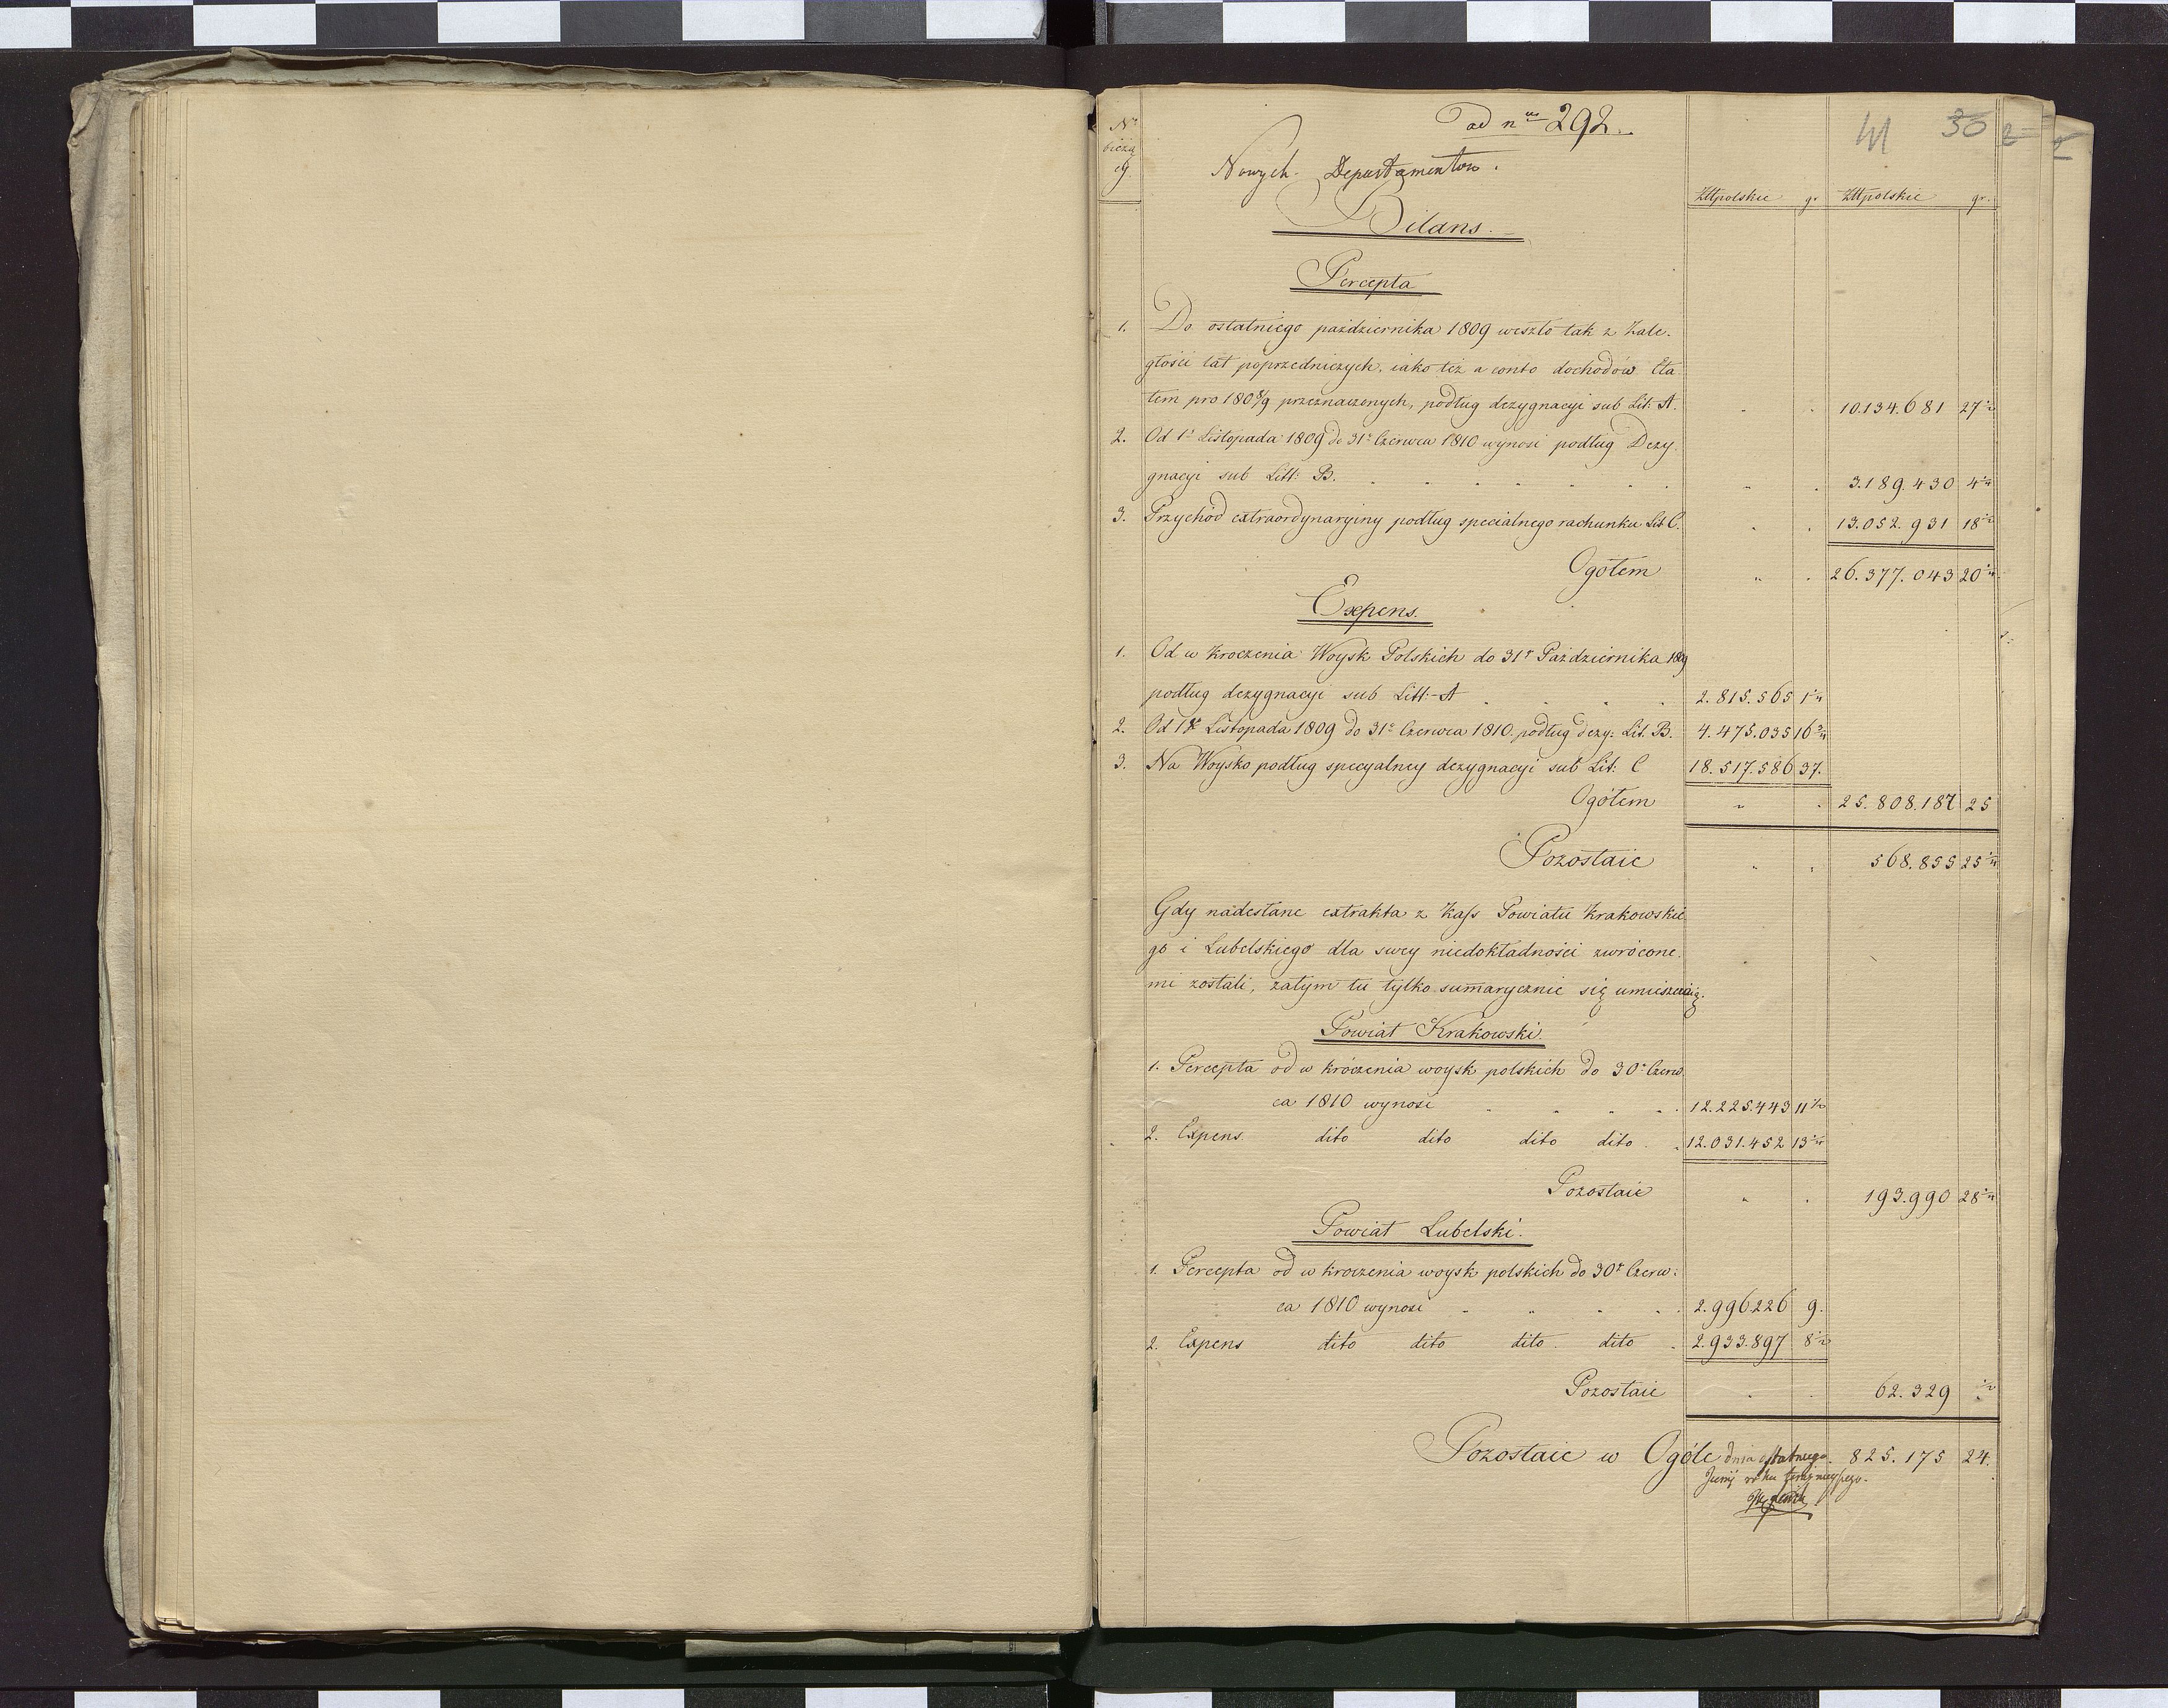 ad n<sup>us</sup> 292.
41 30
2 2
N<sup>o</sup>
bieżą
cy
Nowych Departamentow.
Złłpolskie gr. Złłpolskie gr.
Bilans.
Percepta
1. Do ostatniego października 1809 weszło tak z Zale-
głości lat poprzedniczych, iako też a conto dochodów Eta-
tem pro 180 8/9 przeznaczonych, podług dezygnacyi sub Lit: A. 10.134.681 27 1/2
2. Od 1<sup>o</sup> Listopada 1809 do 31<sup>o</sup> Czerwca 1810 wynosi podług Dezy-
gnacyi sub Litt: B. 3.189.430 4 1/4
3. Przychód extraordynaryiny podług specialnego rachunku Lit C. 13.052.931 18 1/2
Ogółem 26.377.043 20 1/4
Expens.
1. Od w kroczenia Woysk Polskich do 31<sup>o</sup> Października 1809
podług dezygnacyi sub Litt: A 2.815.565 1 1/4
2. Od 1<sup>o</sup> Listopada 1809 do 31<sup>o</sup> Czerwca 1810 podług dezy: Lit. B. 4.475.035 16 3/4
3. Na Woysko podług specyalney dezygnacyi sub Lit: C 18.517.586 37.
Ogółem 25.808.187 25
Pozostaie 568.855 25 1/4
Gdy nadesłane extrakta z Kass Powiatu Krakowskie-
go i Lubelskiego dla swey niedokładności zwrócone-
mi zostali, zatym tu tylko sumarycznie się umieszczaią.
Powiat Krakowski.
1. Percepta od w króczenia woysk polskich do 30<sup>o</sup> Czerw-
ca 1810 wynosi 12.225.443 11 1/2
2. Expens. dito dito dito dito 12.031.452 13 1/4
Pozostaie 193.990 28 1/4
Powiat Lubelski.
1. Percepta od w kroczenia woysk polskich do 30<sup>o</sup> Czerw:
ca 1810 wynosi 2.996.226 9.
2. Expens dito dito dito dito 2.933.897 8 1/2
Pozostaie 62.329 1/2
Pozostaie w Ogóle dnia ostatnego 825.175 24.
Junij roku